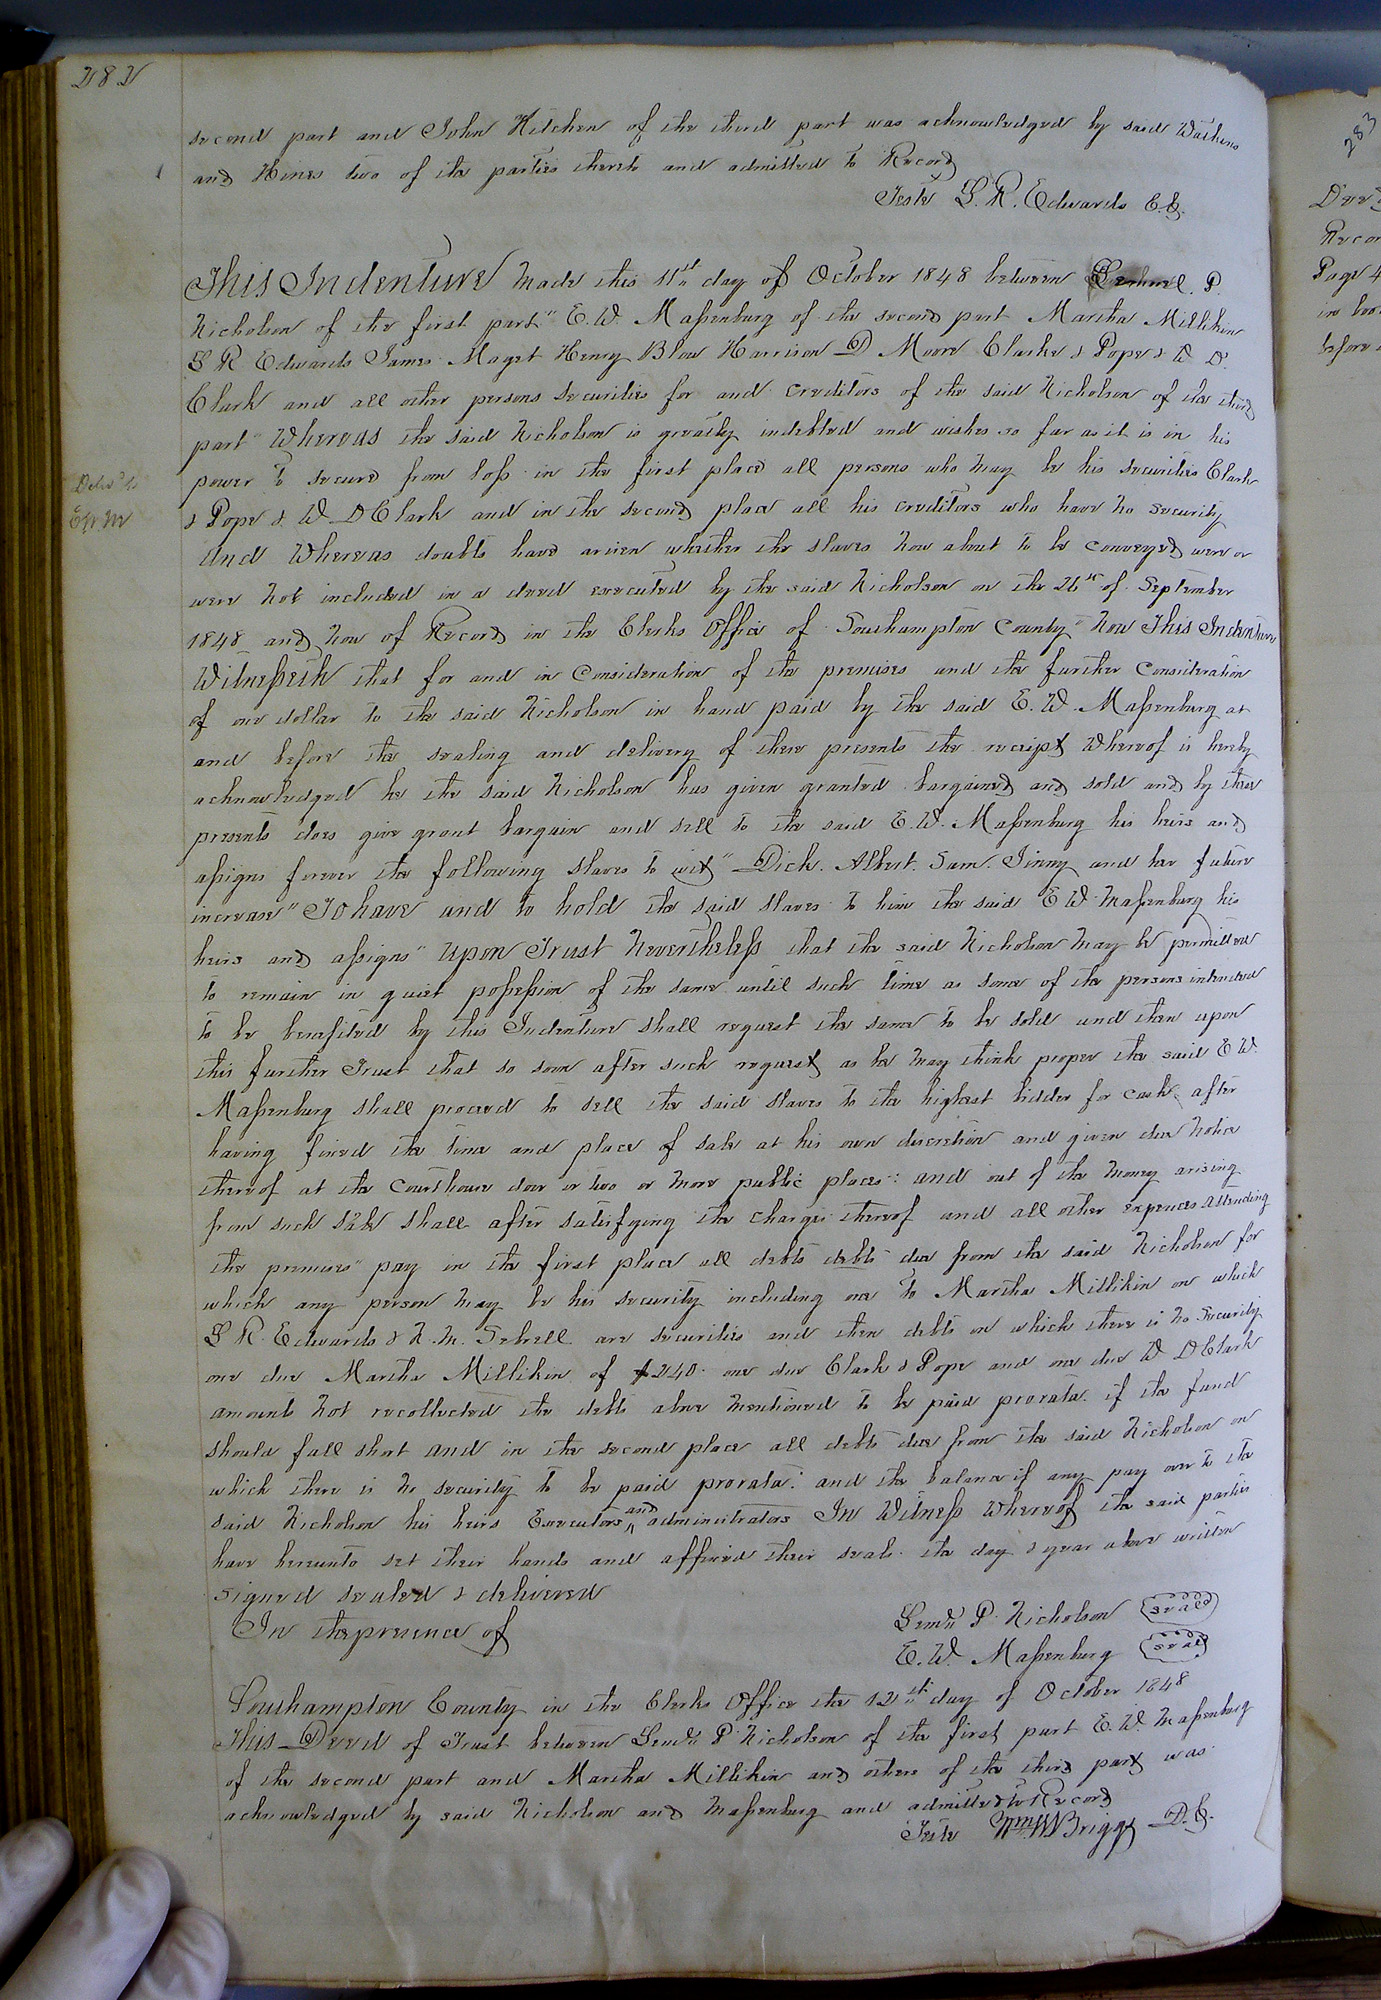 282
second part and John Kitchen of the third part was acknowledged by said Watkins
and Hines two of the parties thereto and admitted to Record
Teste L. R. Edwards C.C.
This Indenture Made this 11th day of October 1848 between Lemuel. P.
Nicholson of the first part" E. W. Massenburg of the second part Martha Millikin
L R Edwards James Maget Henry Blow Harrison D Moore Clarke & Pope & W D.
Clark and all other persons securities for and creditors of the said Nicholson of the third
part" Whereas the said Nicholson is greatly indebted and wishes so far as it is in his
power to secure from loss in the first place all persons who may be his securities Clark
& Pope & W D Clark and in the second place all his creditors who have no security
And Whereas doubts have arisen whether the slaves now about to be conveyed were or
were not included in a deed executed by the said Nicholson on the 26th of September
1848 and now of Record in the Clerks Office of Southampton County" Now This Indenture
Witnesseth that for and in consideration of the premises and the further consideration
of one dollar to the said Nicholson in hand paid by the said E. W. Massenburg at
and before the sealing and delivery of these presents the receipt whereof is hereby
acknowledged he the said Nicholson has given granted bargained and sold and by these
presents does give grant bargain and sell to the said E. W. Massenburg his heirs and
assigns forever the following slaves to wit" Dick. Albert. Sam. Jinny and her future
increase" To have and to hold the said slaves to him the said E W. Massenburg his
heirs and assigns" Upon Trust Nevertheless that the said Nicholson may be permitted
to remain in quiet possession of the same until such time as some of the persons intended
to be benefited by this Indenture shall request the same to be sold and then upon
this further Trust that so soon after such request as he may think proper the said E W.
Massenburg shall proceed to sell the said slaves to the highest bidder for cash after
having fixed the time and place of sale at his own discretion and given due notice
thereof at the Courthouse door or two or more public places: and out of the money arising
from such sale shall after satisfying the charges thereof and all other expences attending
the premises" pay in the first place all debts debts due from the said Nicholson for
which any person may be his security including one to Martha Millikin on which
L R. Edwards & N. M. Sebrell are securities and then debts on which there is no security
one due Martha Millikin of $240. one due Clark & Pope and one due W D Clark
amounts not recollected the debts above mentioned to be paid prorata if the fund
should fall short and in the second place all debts due from the said Nicholson on
which there is no security to be paid prorata: and the balance if any pay over to the
said Nicholson his heirs Executors and administrators In Witness Whereof the said parties
have hereunto set their hands and affixed their seals the day & year above written
Signed sealed & delivered
In the presence of
Leml. P. Nicholson seal
E. W. Massenburg seal
Southampton County in the Clerks Office the 12th day of October 1848
This Deed of Trust between Leml. P. Nicholson of the first part E. W. Massenburg
of the second part and Martha Millikin and others of the third part was
acknowledged by said Nicholson and Massenburg and admitted to Record
Teste Wm W Briggs D.C.
Deld. to
E W. M
283
Deed
Recor
Page 4
in boo
before